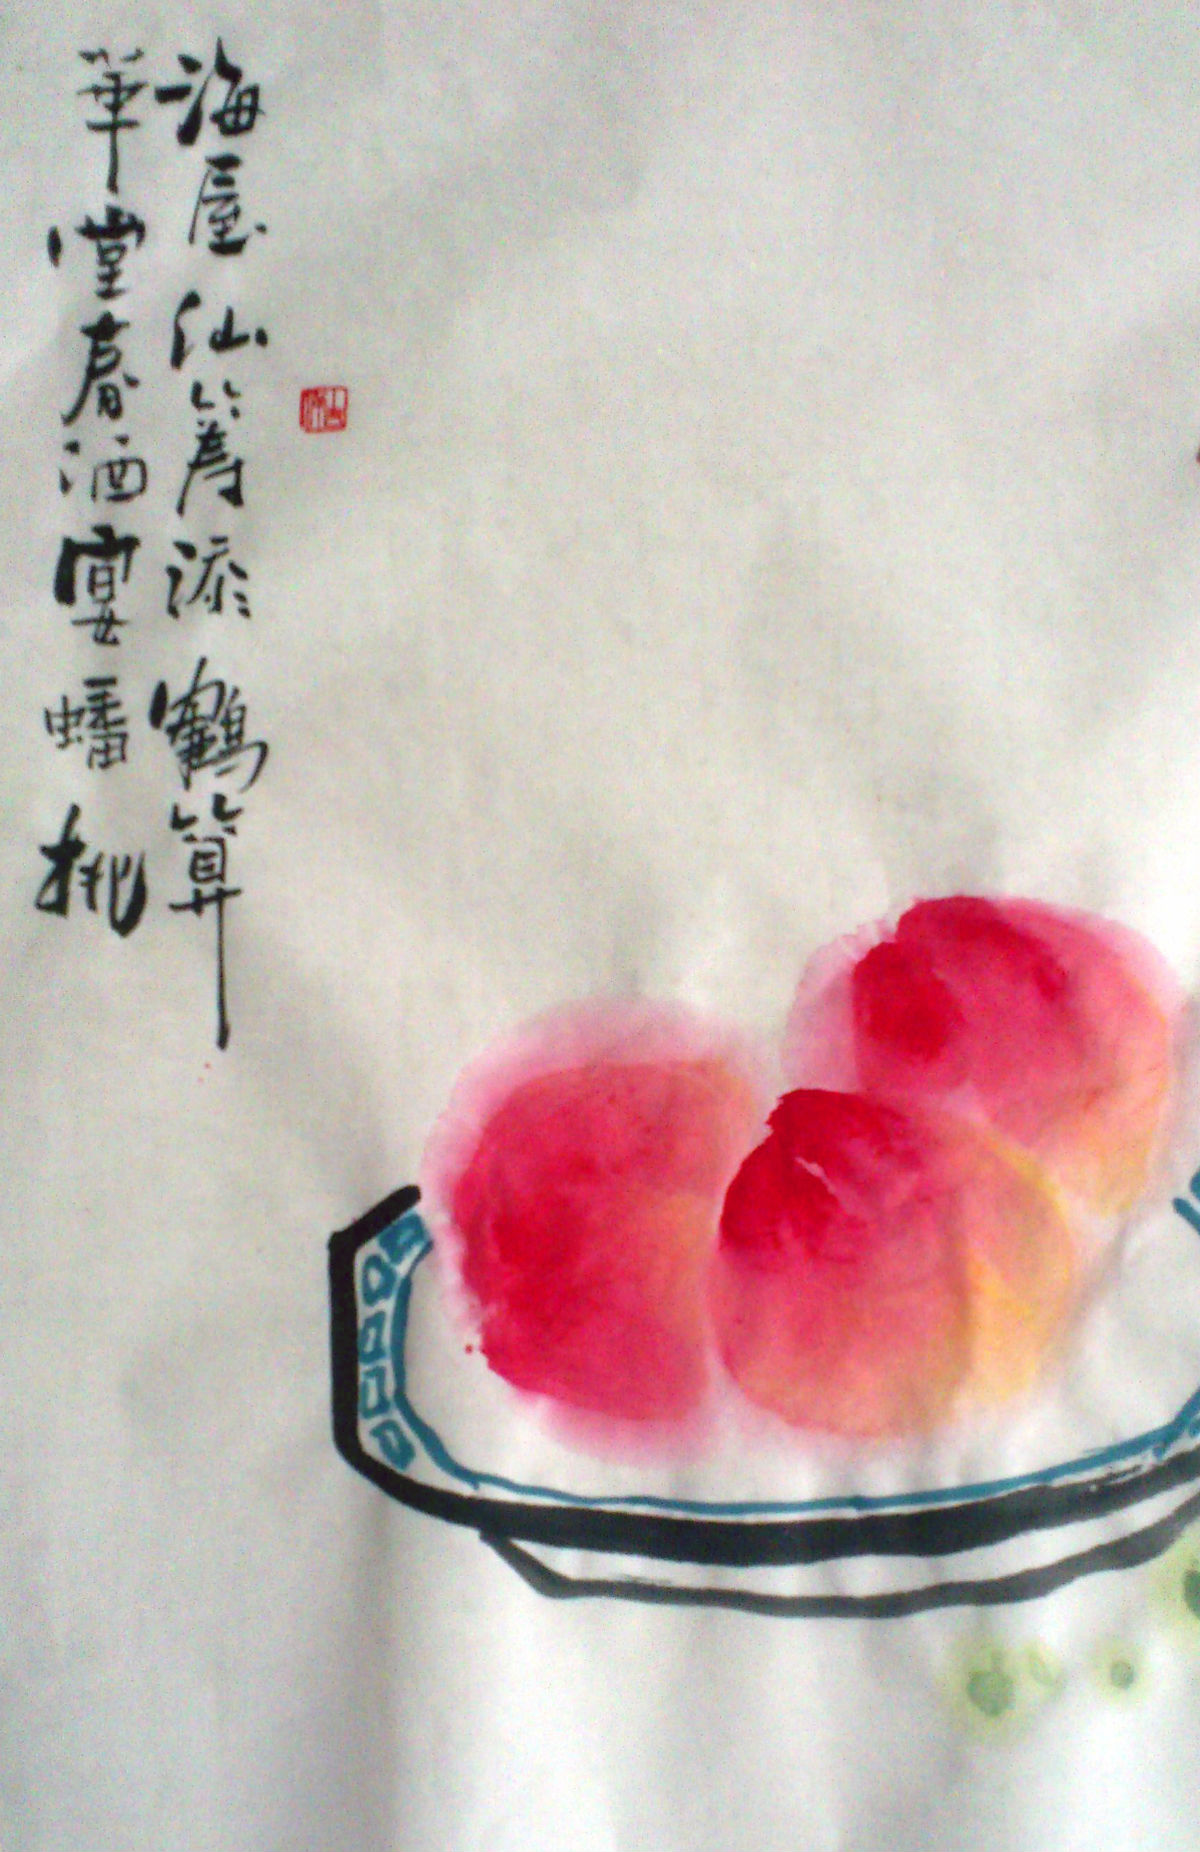 海屋仙筹添鶴算
華堂春酒宴蟠桃